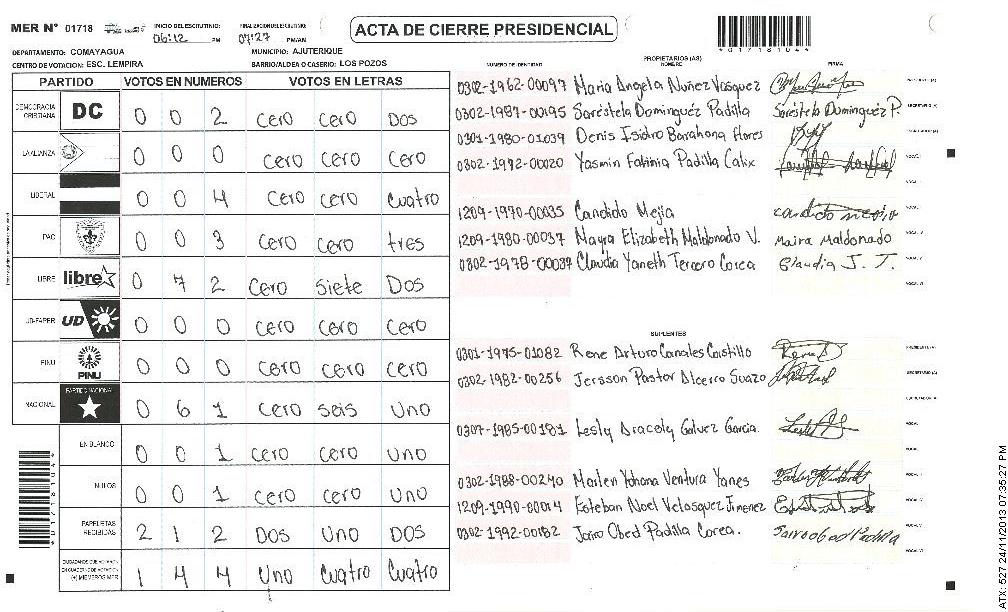 MER N° 01718
INICIO DEL ESCRUTINIO: 06:12 PM
FINALIZACION ESCRUTINIO: 07:27 PM/AM
ACTA DE CIERRE PRESIDENCIAL
01718104
DEPARTAMENTO: COMAYAGUA
MUNICIPIO: AJUTERIQUE
CENTRO DE VOTACION: ESC. LEMPIRA
BARRIO/ALDEA O CASERIO: LOS POZOS
PARTIDO VOTOS EN NUMEROS VOTOS EN LETRAS
DEMOCRACIA CRISTIANA DC 0 0 2 cero cero Dos
LA ALIANZA 0 0 0 cero cero cero
LIBERAL 0 0 4 cero cero cuatro
PAC 0 0 3 cero cero tres
LIBRE libre 0 7 2 cero siete Dos
UD-FAPER UD 0 0 0 cero cero cero
PINU PINU 0 0 0 cero cero cero
NACIONAL PARTIDO NACIONAL 0 6 1 cero seis uno
EN BLANCO 0 0 1 cero cero uno
NULOS 0 0 1 cero cero uno
PAPELETAS RECIBIDAS 2 1 2 DOS UNO DOS
CIUDADANOS QUE VOTARON EN CUADERNO DE VOTACION (+) MIEMBROS MER 1 4 4 Uno Cuatro Cuatro
PROPIETARIOS (AS)
NUMERO DE IDENTIDAD NOMBRE FIRMA
0302-1962-00097 Maria Angela Nuñez Vasquez
0302-1987-00195 Saréstela Dominguez Padilla Saréstela Dominguez P.
0301-1980-01039 Denis Isidro Barahona Flores
0302-1972-00020 Yasmin Padilla Calix
1209-1970-00035 Candido Mejia candido mejia
1209-1980-00037 Mayra Elizabeth Maldonado V. Maira Maldonado
0302-1978-00039 Claudia Yaneth Tercero Corea Claudia J. T.
SUPLENTES
0301-1975-01082 Rene Arturo Canales Castillo
0302-1982-00256 Jersson Pastor Alcerro Suazo
0307-1985-00181 Lesly Aracely Galvez Garcia.
0302-1988-00240 Marlen Yohana Ventura Yanes
1209-1990-00014 Esteban Noel Velasquez Jimenez
0302-1992-00182 Jairo Obed Padilla Corea. Jairo obed Padilla
ATX: 527 24/11/2013 07:35:27 PM